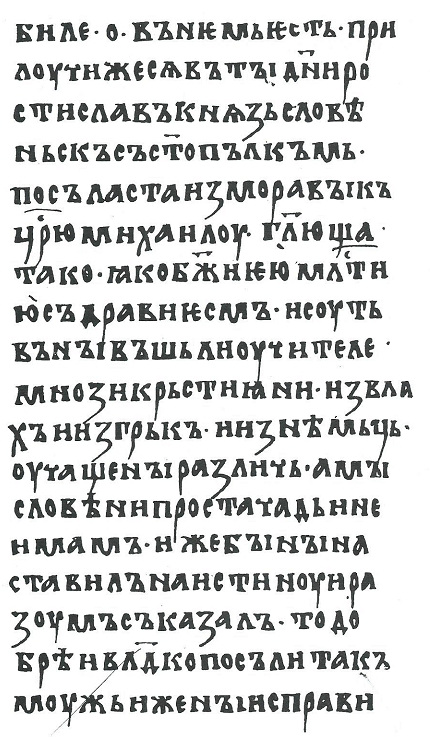 биле · о · въ н҄ емь ѥсть · при
лоучи же сѧ въ тꙑ дн҃и ро
стиславъ кнѧзь словѣ
ньскъ съ ст҃опълкъмь ·
посъласта из моравꙑ къ
цр҃ю михаилоу · гл҃юща ·
тако · ꙗко бж҃иѥю млⷭ҇ти
ю съдрави ѥсмъ · и соуть
въ нꙑ въшьли оучителе ·
мнози крьстиꙗни · из вла
хъ и из грькъ · и из нѣмьць ·
оучаще нꙑ различь · а мꙑ
словѣни проста чадь и не
имамъ · иже бꙑ нꙑ на
ставилъ на истиноу и ра
зоумъ съказалъ · то до
брѣи влⷣко посъли такъ
моужь иже нꙑ исправи